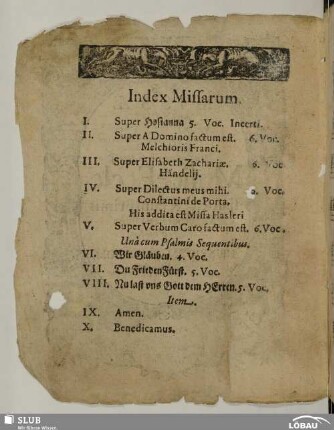 Index Missarum.
I. Super Hosianna 5. Voc. Incerti.
II. Super A Domino factum est. 6. Voc.
Melchioris Franci.
III. Super Elisabeth Zachariæ. 6. Voc
Händelij.
IV. Super Dilectus meus mihi. Voc.
Constantini de Porta.
His addita est Missa Hasleri
V. Super Verbum Caro factum est. 6. Voc.
Unà cum Psalmis Sequentibus.
VI. Wir Gläuben. 4. Voc.
VII. Du FriedenFürst. 5. Voc.
VIII. Nu last vns Gott dem HErren. 5. Voc.
Item.
IX. Amen.
X. Benedicamus.
SLUB
Wir führen Wissen.
LÖBAU